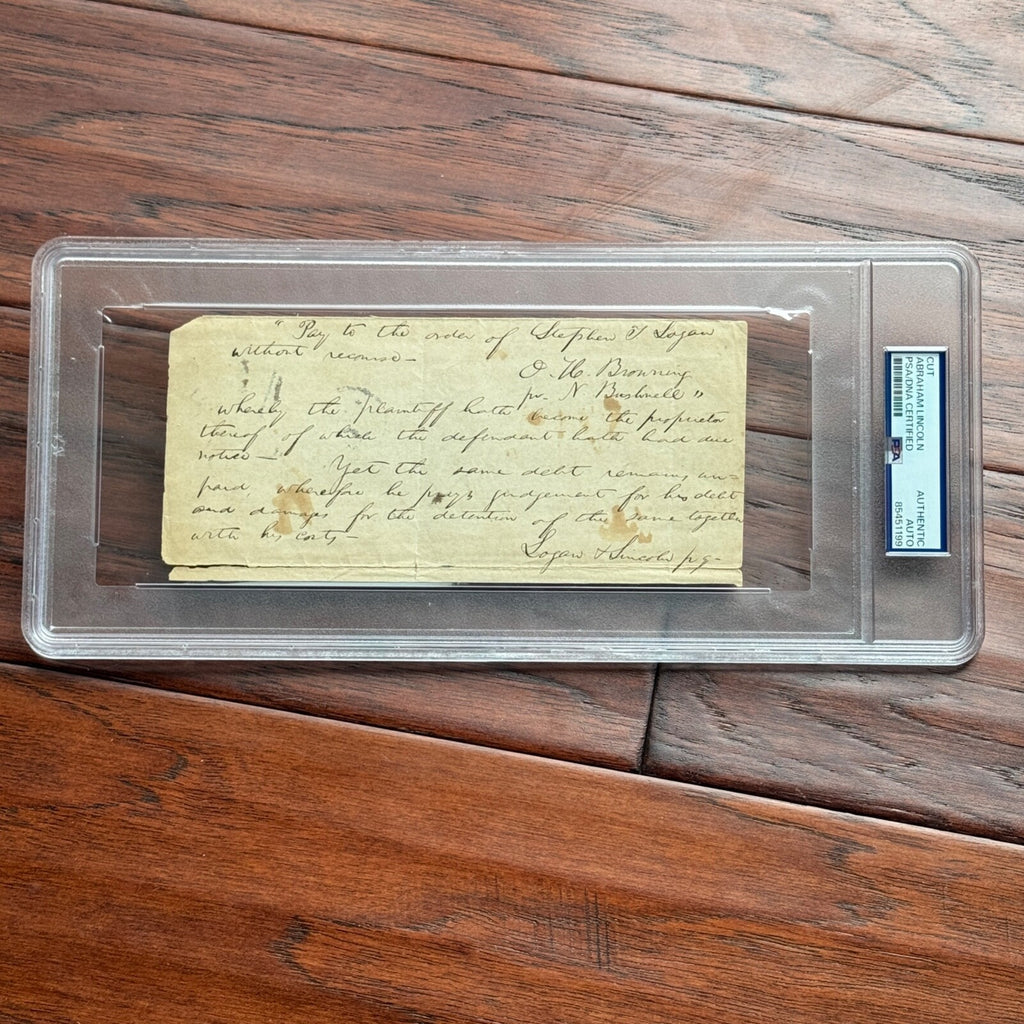 " Pay to the order of Stephen T Logan
without recourse—
O. H. Browning
pr. N. Bushnell "
whereby the plaintiff hath become the proprietor
thereof of which the defendant hath had due
notice—
Yet the same debt remains un-
paid, wherefore he prays judgement for his debt
and damages for the detention of the same together
with his costs—
Logan & Lincoln p q—
CUT
ABRAHAM LINCOLN
PSA/DNA CERTIFIED
PSA
AUTHENTIC
AUTO
85451199